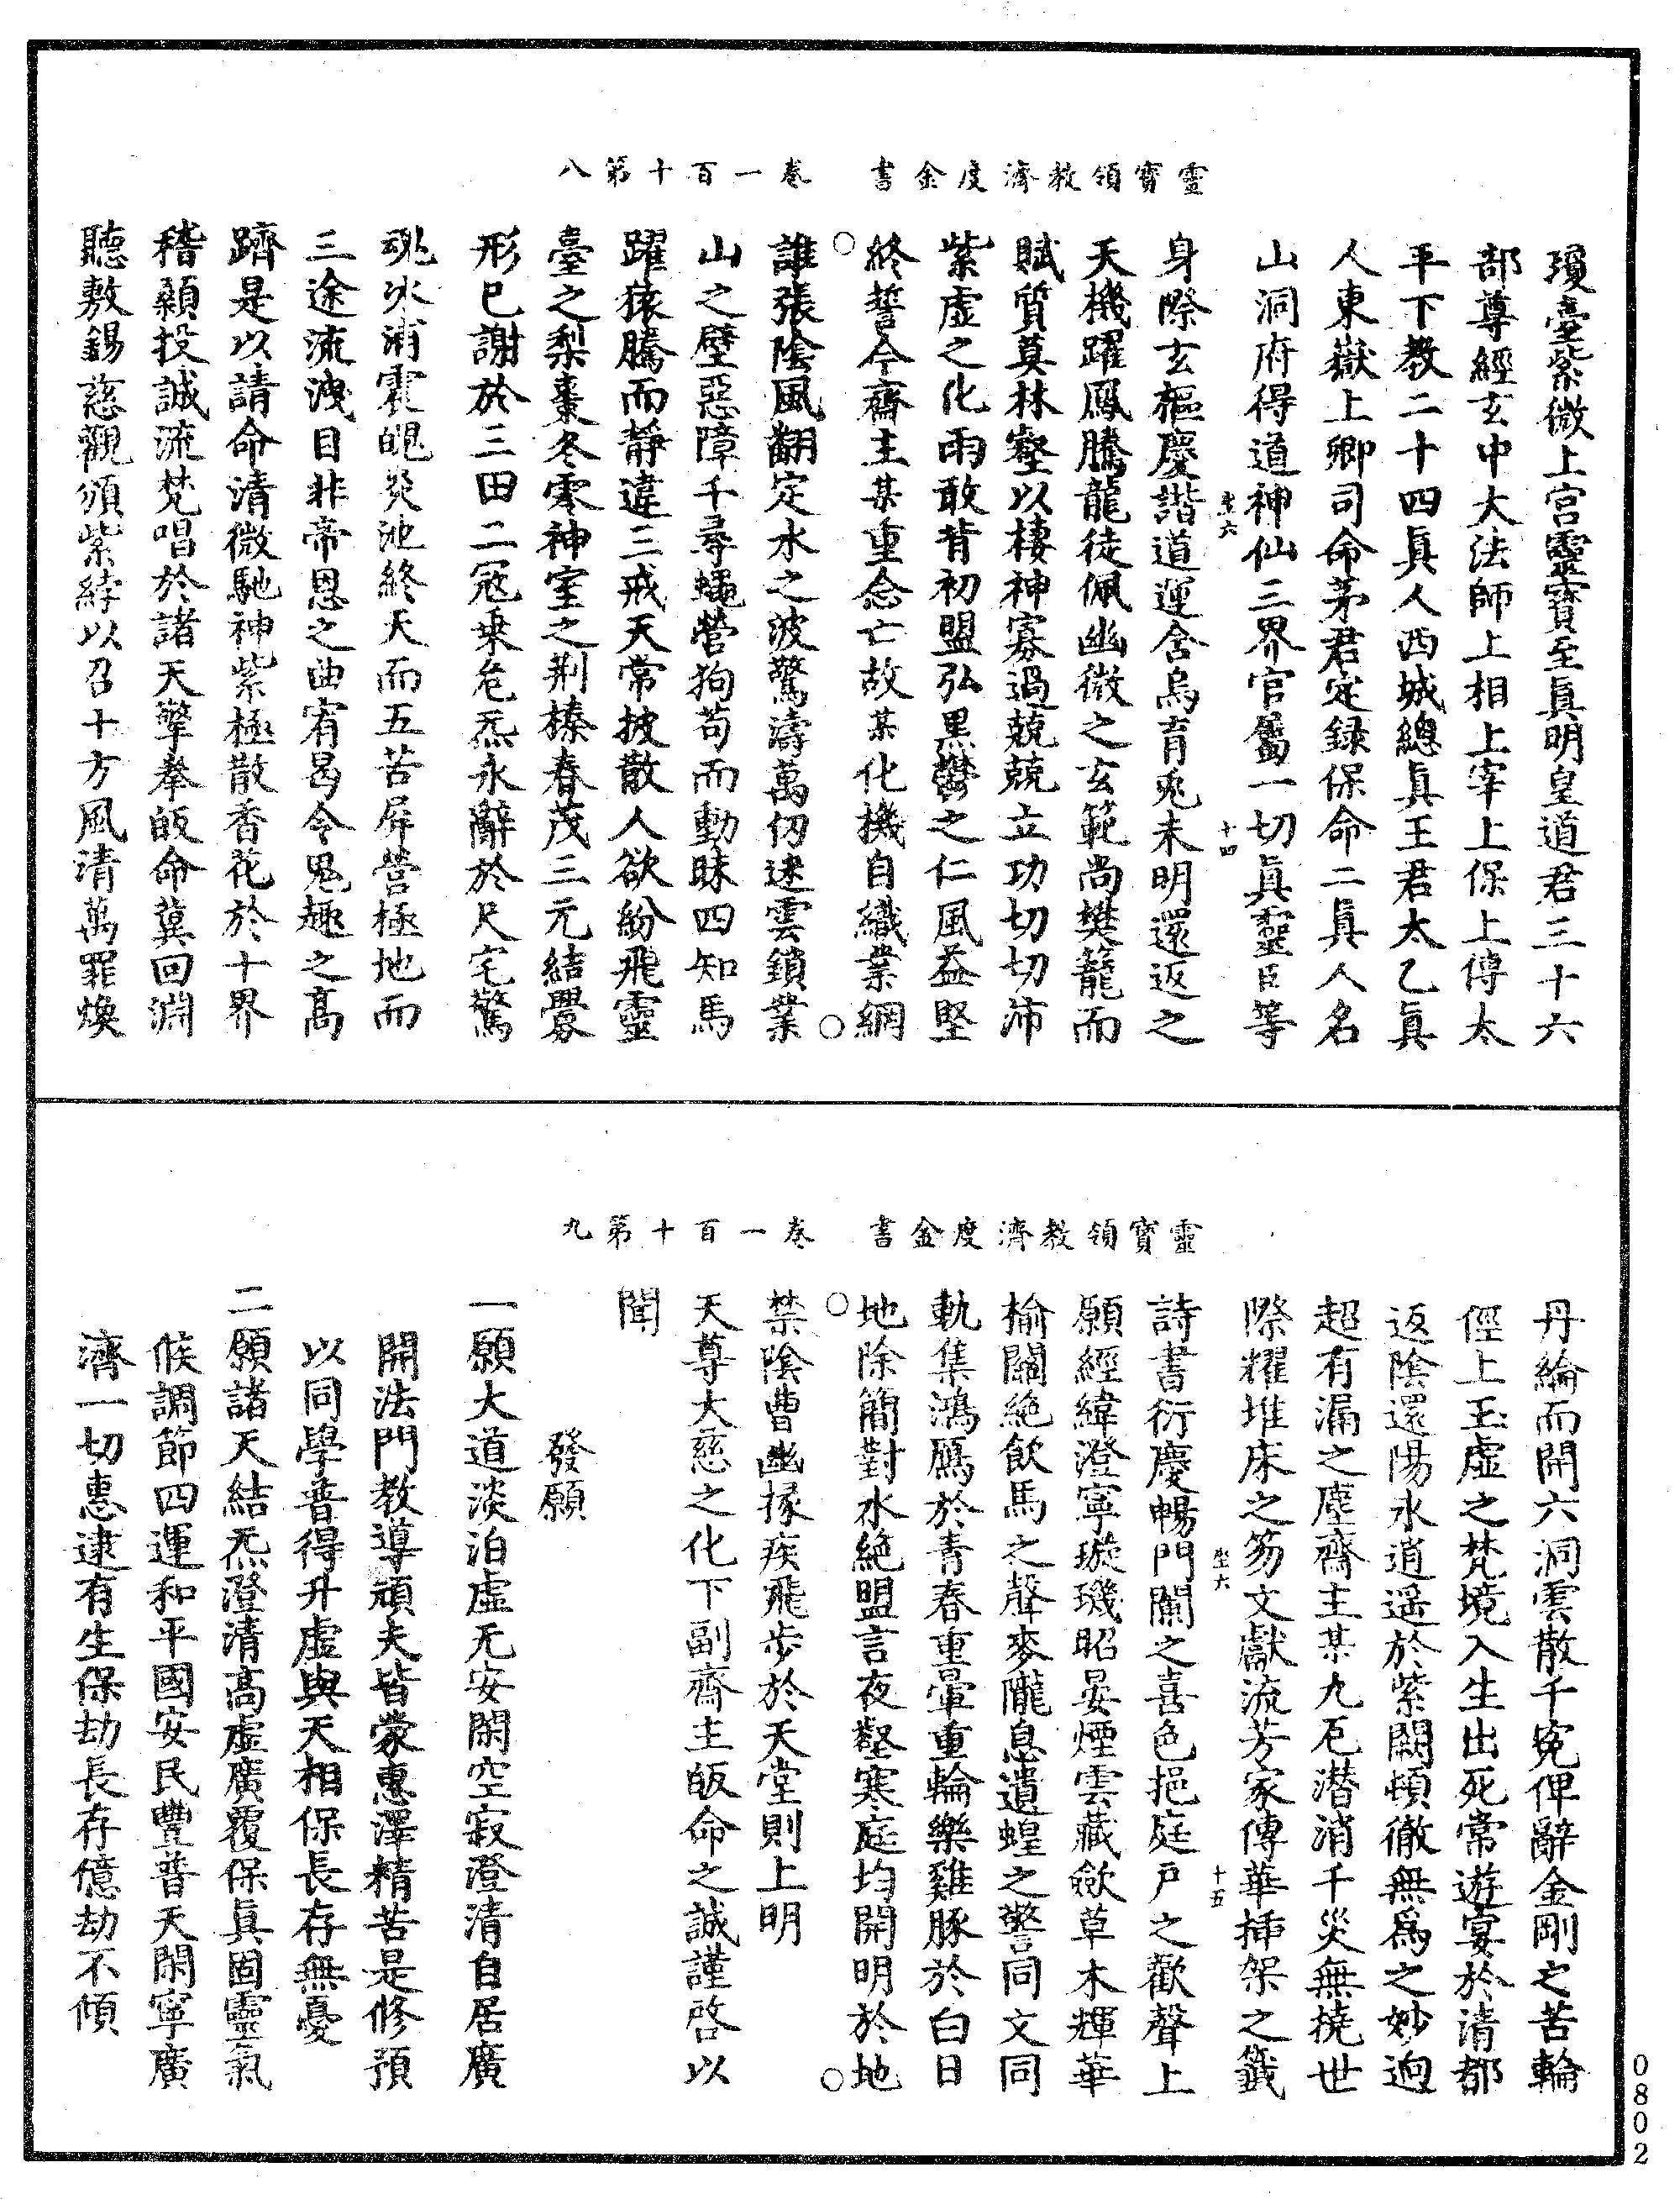 靈寶領教濟度金書　卷一百十第八
瓊臺紫微上宫靈寶至眞明皇道君三十六
部尊經玄中大法師上相上宰上保上傅太
平下教二十四眞人西城總眞王君太乙眞
人東嶽上卿司命茅君定録保命二眞人名
山洞府得道神仙三界官屬一切眞靈臣等
坐六
十四
身際玄樞慶諧道運含烏育兎未明還返之
天機躍鳳騰龍徒佩幽微之玄範尚樊籠而
賦質莫林壑以棲神寡過兢兢立功切切沛
紫虚之化雨敢背初盟弘黒鬱之仁風益堅
終誓今齋主某重念亡故某化機自織業綱
○　○
誰張陰風翻定水之波驚濤萬仭迷雲鎖業
山之壁惡障千尋蠅營狗苟而動昧四知馬
躍猿騰而靜違三戒天常披散人欲紛飛靈
臺之梨棗冬零神室之荆榛春茂三元結釁
形已謝於三田二冦乗危炁永辭於尺宅驚
魂火浦霍魄炎池終天而五苦屏營極地而
三途流洩目非帝恩之曲宥曷令鬼趣之高
躋是以請命清微馳神紫極散香花於十界
稽顙投誠流梵唱於諸天擎拳皈命冀回淵
聽敷錫慈觀頒紫綍以召十方風清萬罪煥
靈寶領教濟度金書　卷一百十第九
丹綸而開六洞雲散千寃俾辭金剛之苦輪
徑上玉虚之梵境入生出死常遊宴於清都
返陰還陽永逍遥於紫闕頓徹無爲之妙逈
超有漏之塵齋主某九厄潜消千災無撓世
際耀堆床之笏文獻流芳家傳華挿架之籖
坐六
十五
詩書衍慶暢門闌之喜色挹庭戸之歡聲上
願經緯澄寧璇璣昭晏煙雲藏歛草木輝華
榆關絶飲馬之聲麥隴息遺蝗之警同文同
軌集鴻鴈於青春重暈重輪樂雞豚於白日
地除簡對水絶盟言夜壑寒庭均開明於地
○　○
禁陰曹幽掾疾飛步於天堂則上明
天尊大慈之化下副齋主皈命之誠謹啓以
聞
發願
一願大道淡泊虚无安閑空寂澄清自居廣
開法門教導頑夫皆蒙惠澤精苦是修預
以同學普得升虚與天相保長存無憂
二願諸天結炁澄清高虚廣覆保眞固靈氣
候調節四運和平國安民豐普天閑寧廣
濟一切惠逮有生保劫長存億劫不傾
0802